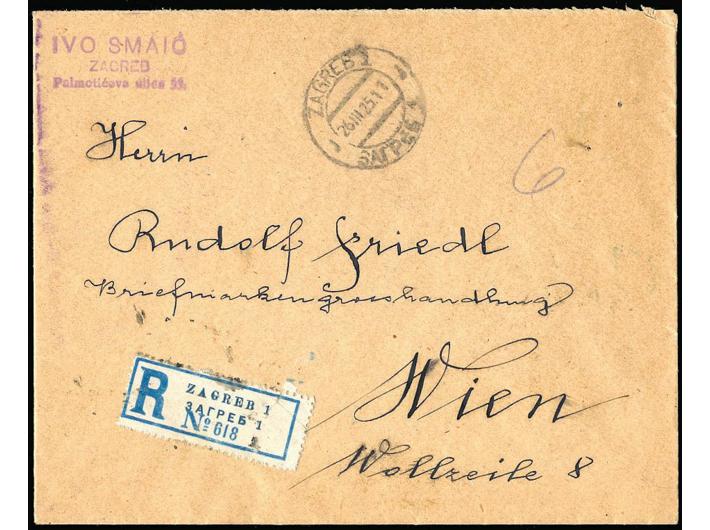 IVO SMAIĆ
ZAGREB
Palmotićeva ulica 59.
ZAGREB 1
26.III.25.11
ЗАГРЕБ 1
6
Herrn
Rudolf Friedl
Briefmarkengrosshandlung
Wien
Wollzeile 8
R
ZAGREB 1
ЗАГРЕБ 1
№ 618